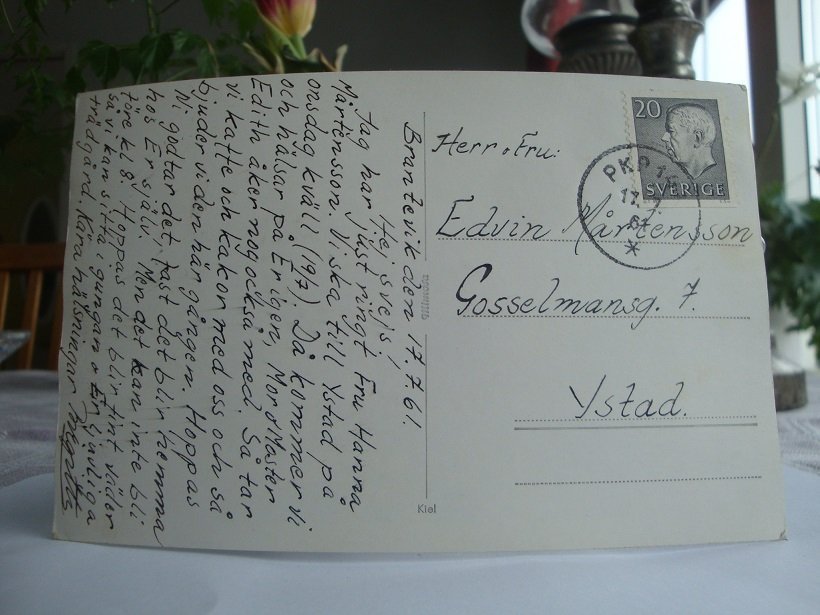 Brantevik den 17.7.61.
Hej svejs!
Jag har just ringt Fru Hanna
Mårtensson. Vi ska till Ystad på
onsdag kväll (19/7) Då kommer vi
och hälsar på Er igen, Mor o Moster
Edith åker nog också med. Så tar
vi kaffe och kakor med oss och så
bjuder vi den här gången. Hoppas
Ni godtar det, fast det blir hemma
hos Er själv. Men det kan inte bli
före kl 8. Hoppas det blir fint väder
så vi kan sitta i gungan o Er ljuvliga
trädgård. Kära hälsningar
Herr o Fru:
Edvin Mårtensson
Gosselmansg. 7.
Ystad.
20
SVERIGE
PKP
17. 7
61
Kiel